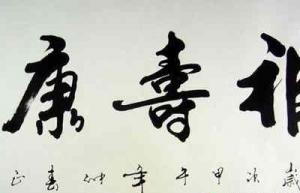 壽康
歲次甲午年仲春